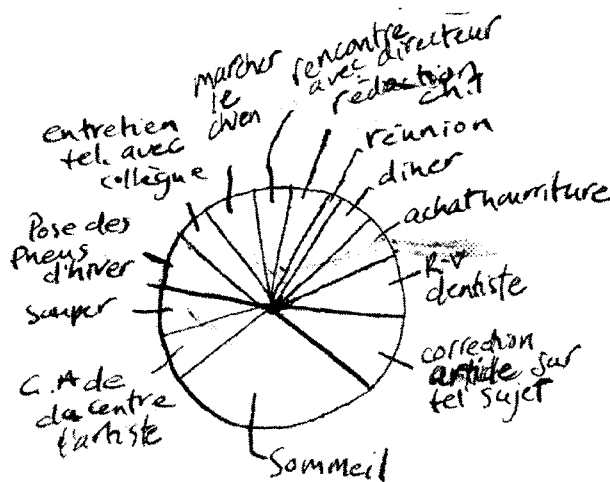 marcher
le
chien
rencontre
avec directeur
rédaction
ch.1
réunion
dîner
achat nourriture
R-V
dentiste
correction
article sur
tel sujet
Sommeil
C.A de
du centre
d'artiste
souper
Pose des
Pneus
d'hiver
entretien
tel. avec
collègue